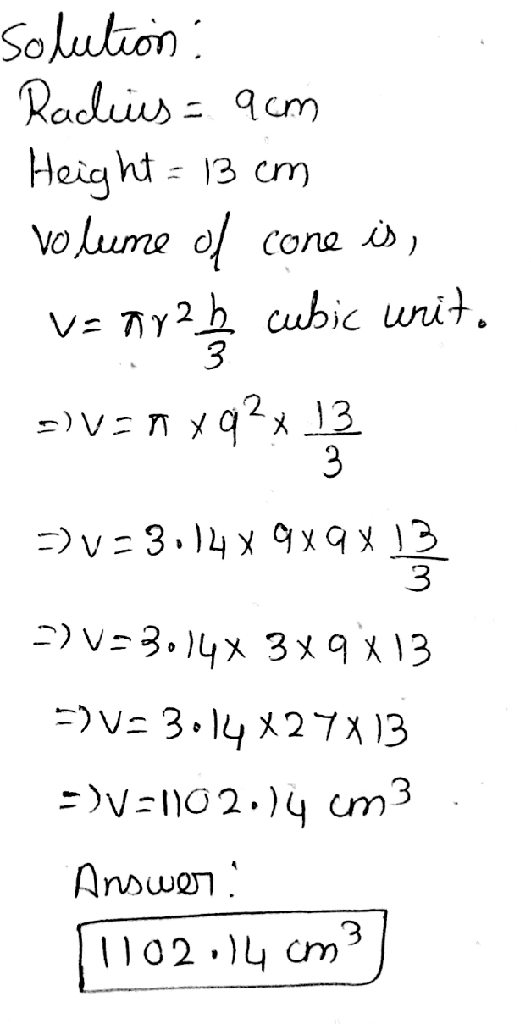 Solution:
Radius = 9cm
Height = 13 cm
Volume of cone is,
V = πr² h/3 cubic unit.
=) V = π x 9² x 13/3
=) V = 3.14 x 9x9x 13/3
=) V = 3.14x 3x9x13
=) V = 3.14 x27x13
=) V = 1102.14 cm³
Answer:
1102.14 cm³